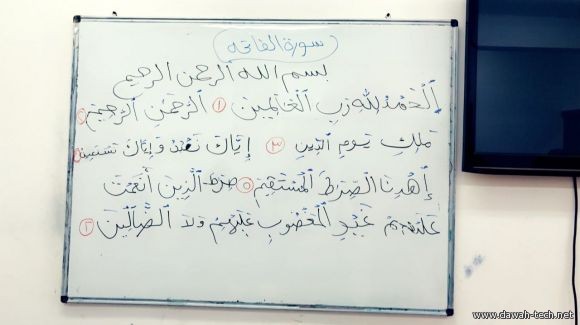 سورة الفاتحة
بسم الله الرحمن الرحيم
ٱلْحَمْدُ لِلَّهِ رَبِّ ٱلْعَالَمِينَ ١ ٱلرَّحْمَٰنِ ٱلرَّحِيمِ ٢
مَٰلِكِ يَوْمِ ٱلدِّينِ ٣ إِيَّاكَ نَعْبُدُ وَإِيَّاكَ نَسْتَعِينُ ٤
ٱهْدِنَا ٱلصِّرَٰطَ ٱلْمُسْتَقِيمَ ٥ صِرَٰطَ ٱلَّذِينَ أَنْعَمْتَ
عَلَيْهِمْ غَيْرِ ٱلْمَغْضُوبِ عَلَيْهِمْ وَلَا ٱلضَّآلِّينَ ٦
www.dawah-tech.net